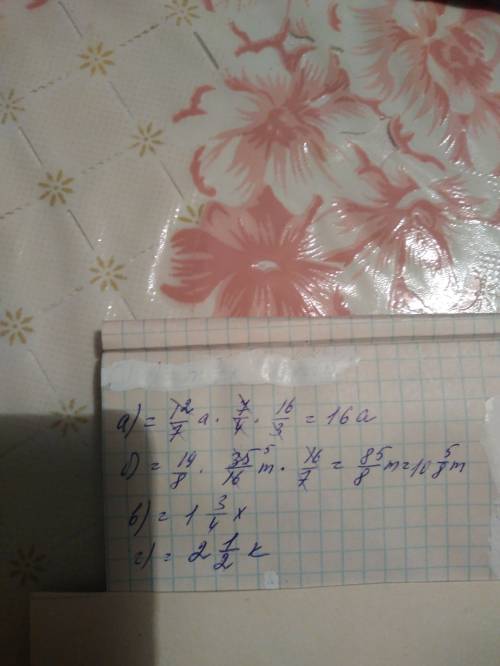 а) = 12/7 a · 7/4 · 16/3 = 16a
б) = 19/8 · 35/16 5 m · 16/7 = 85/8 m = 10 5/8 m
в) = 1 3/4 x
г) = 2 1/2 k